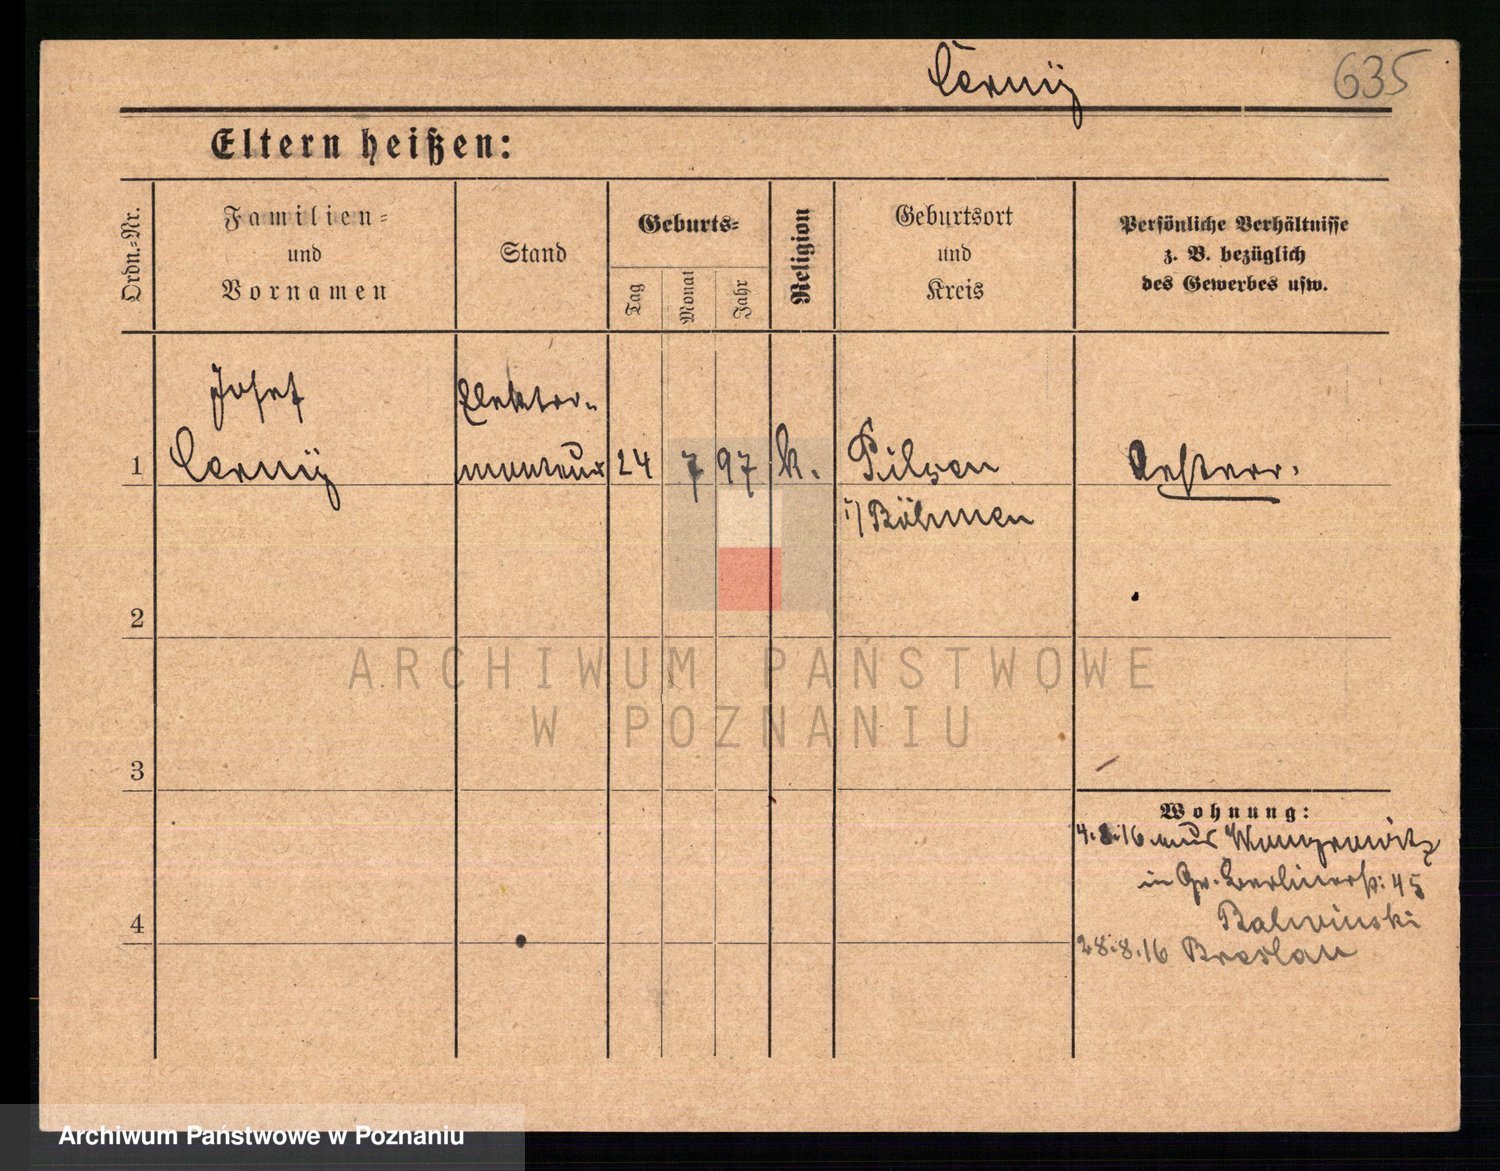 Černÿ
635
Eltern heißen:
Ordn.-Nr.
Familien-
und
Vornamen
Stand
Geburts-
Tag
Monat
Jahr
Religion
Geburtsort
und
Kreis
Persönliche Verhältnisse
z. B. bezüglich
des Gewerbes usw.
Josef
Elektor-
1
Černÿ
monteur
24
7
97
k.
Pilsen
Oesterr.
i/Böhmen
2
ARCHIWUM PAŃSTWOWE
W POZNANIU
3
Wohnung:
4.8.16 aus Wongrowitz
in Gr. Berlinerstr. 45
4
Balwinski
28.8.16 Breslau
Archiwum Państwowe w Poznaniu